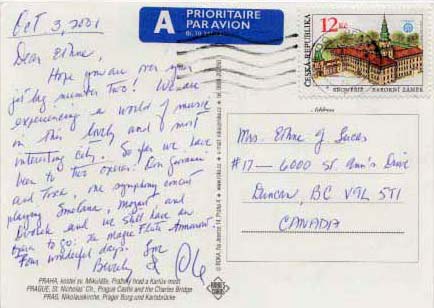 Oct 3, 2001
PRIORITAIRE
PAR AVION
A
12 Kč
ČESKÁ REPUBLIKA
KROMĚŘÍŽ - BAROKNÍ ZÁMEK
Dear Ethne,
Hope you are over your
jet lag number two! We are
experiencing a world of music
in this lovely and most
interesting city. So far we have
been to two operas: Don Giovanni
and Tosca, one symphony concert
playing Smetana, Mozart, and
Dvorak and we still have an
to go: The Magic Flute
Four wonderful days. Love
Beverly &
PRAHA, kostel sv. Mikuláše, Pražský hrad a Karlův most
PRAGUE, St. Nicholas' Ch., Prague Castle and the Charles Bridge
PRAG, Nikolauskirche, Prager Burg und Karlsbrücke
Address
Mrs. Ethne J Lucas
#17 — 6000 St. Ann's Drive
Duncan, BC V9L 5T1
CANADA